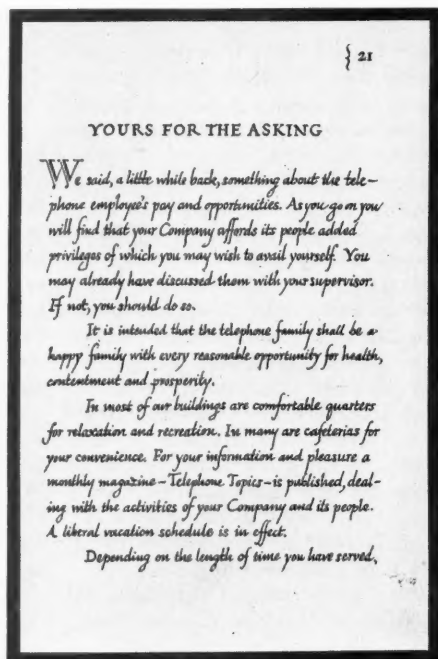 { 21
YOURS FOR THE ASKING
We said, a little while back, something about the tele-
phone employee's pay and opportunities. As you go on you
will find that your Company affords its people added
privileges of which you may wish to avail yourself. You
may already have discussed them with your supervisor.
If not, you should do so.
It is intended that the telephone family shall be a
happy family with every reasonable opportunity for health,
contentment and prosperity.
In most of our buildings are comfortable quarters
for relaxation and recreation. In many are cafeterias for
your convenience. For your information and pleasure a
monthly magazine - Telephone Topics - is published, deal-
ing with the activities of your Company and its people.
A liberal vacation schedule is in effect.
Depending on the length of time you have served,